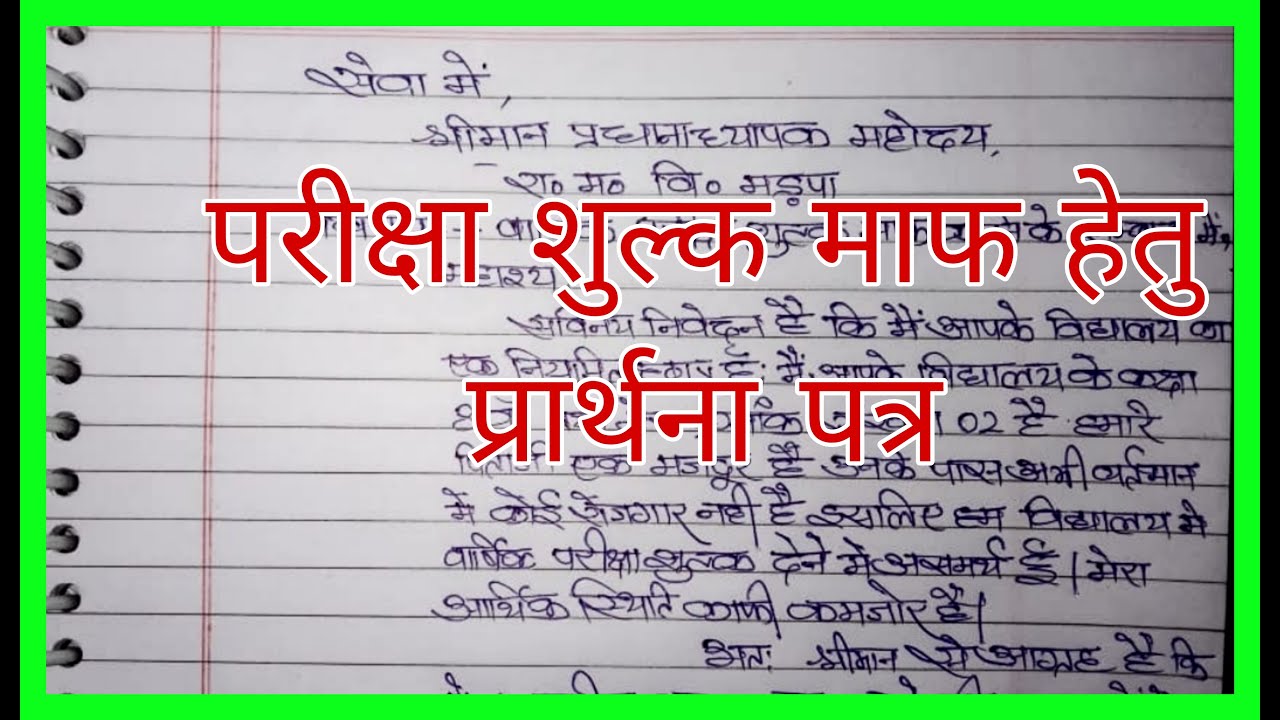 सेवा में,
श्रीमान प्रधानाध्यापक महोदय,
रा० म० वि० मड़पा
परीक्षा शुल्क माफ हेतु
प्रार्थना पत्र
सविनय निवेदन है कि मैं आपके विद्यालय का
एक नियमित मैं आपके विद्यालय के कक्षा
02 है हमारे
एक मजदूर है उनके पास अभी वर्तमान
में कोई रोजगार नहीं है इसलिए हम विद्यालय में
वार्षिक परीक्षा शुल्क देने में असमर्थ हूँ | मेरा
आर्थिक स्थिति काफी कमजोर है|
अतः श्रीमान से आग्रह है कि